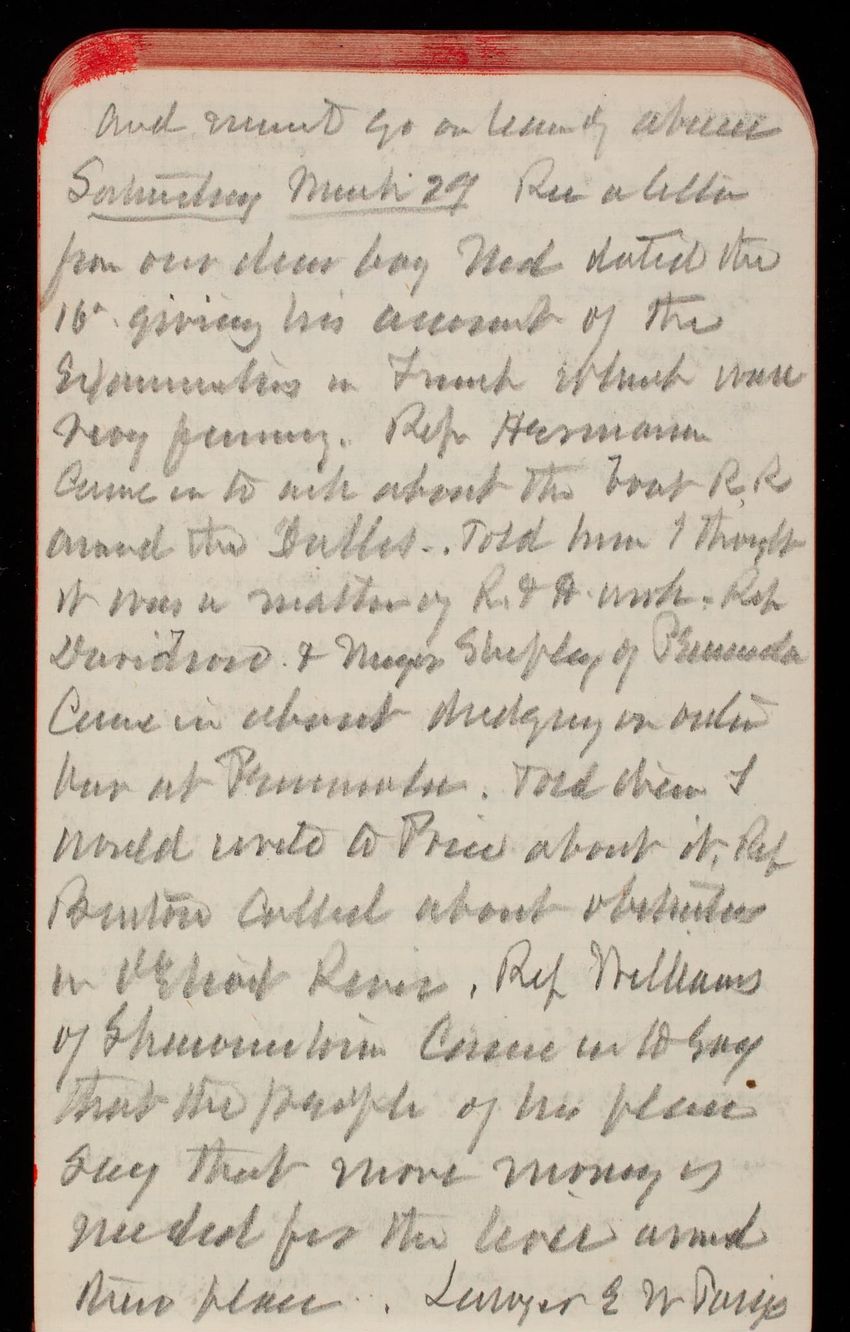 and must go on leave of absence
Saturday March 29 Rec a letter
from our dear boy Ned dated the
16" giving his account of the
Examination in French which was
very funny. Rep Hermann
Came in to ask about the boat R.R
around the Dalles.. Told him I thought
it was a matter of R. & H work. Rep
Davidson & Mayor Shipley of Pensacola
Came in about dredging on outer
bar at Pensacola. Told them I
would write to Price about it. Rep
Benton Called about obstruction
in River. Rep Williams
of Shawneetown Came in to say
that the people of his place
say that more money is
needed for the levee around
their place. Lawyer E W